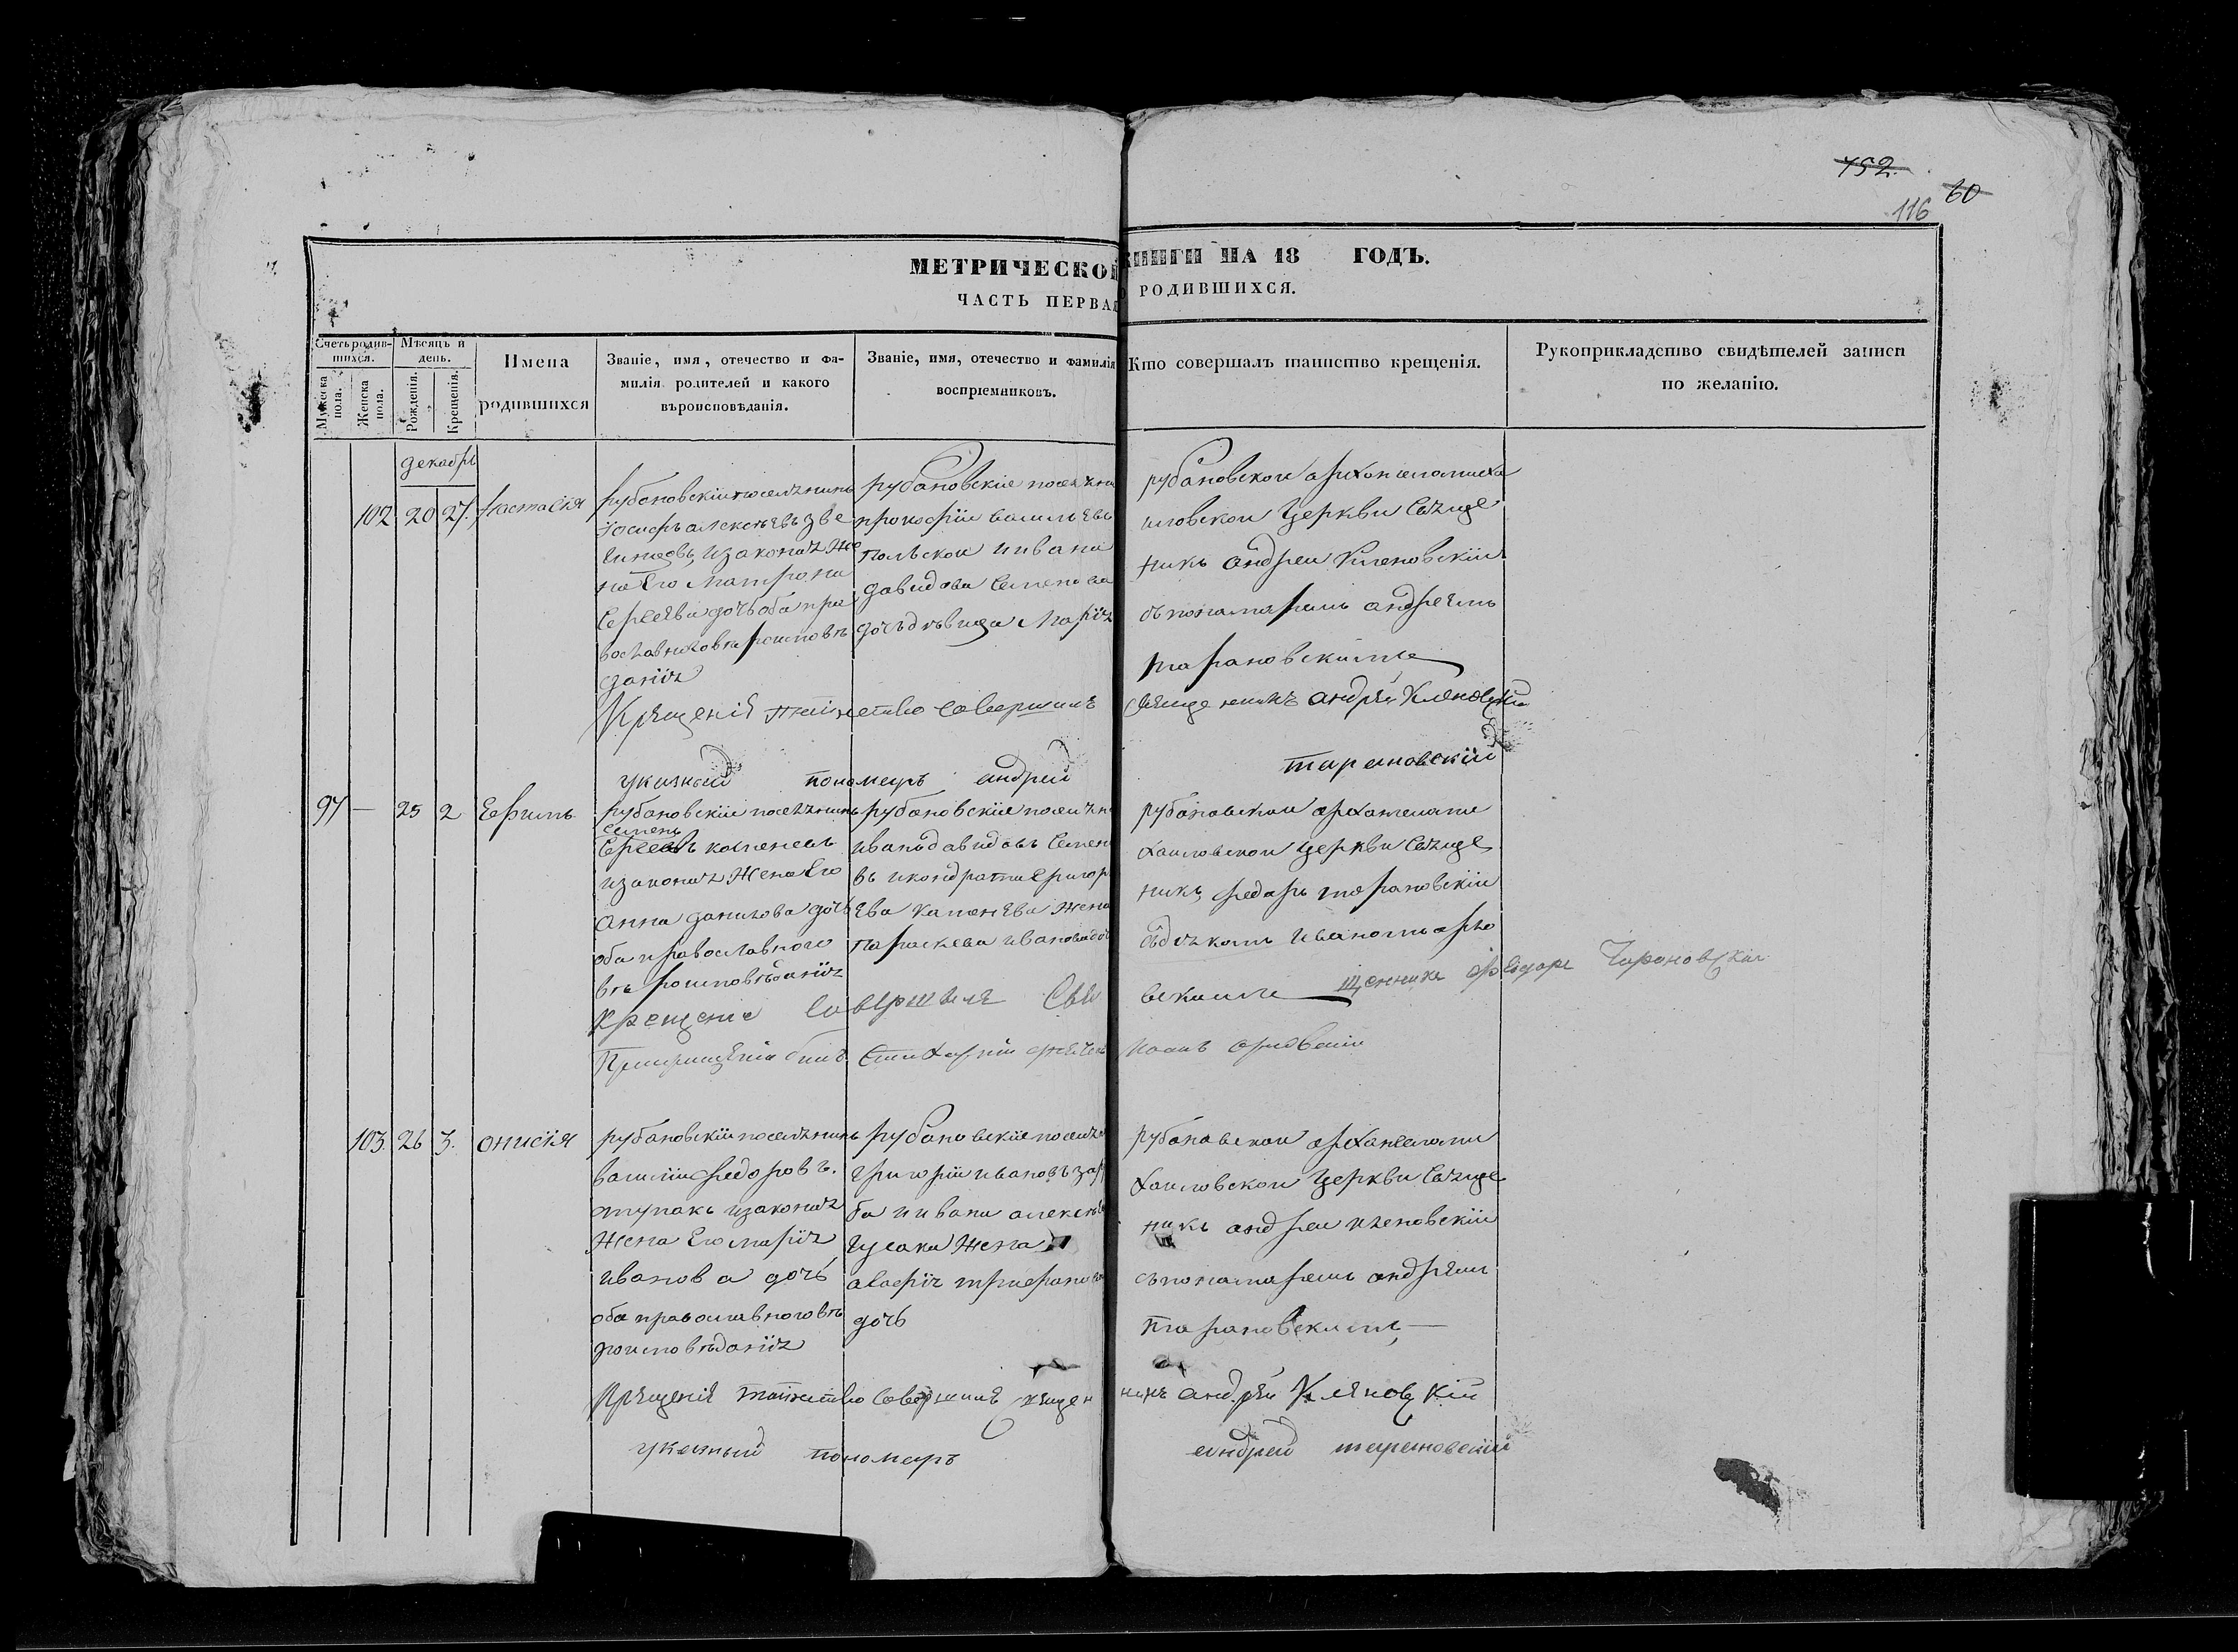 752.
60
116
МЕТРИЧЕСКОЙ КНИГИ НА 18 ГОДЪ.
ЧАСТЬ ПЕРВАЯ О РОДИВШИХСЯ.
Счетъ родившихся.
Мужеска пола.
Женска пола.
Мѣсяцъ и день.
Рожденія.
Крещенія.
Имена родившихся
Званіе, имя, отечество и фа-
милія родителей и какого
вѣроисповѣданія.
Званіе, имя, отечество и фамилія
воспріемниковъ.
Кто совершалъ таинство крещенія.
Рукоприкладство свидѣтелей записи
по желанію.
декабрь
102 20 27.
рубановскій поселянинъ
іосифъ алексѣевъ зве
изаконая же
на Его матрона
Сергеева дочь оба пра
вославнаго вѣроисповѣ
данія
рубановскіе поселяне
прокофій васильевъ
польской и ивана
давидова Семенова
дочь дѣвица Марія
рубановской архангеломиха
иловской Церкви Свяще
никъ андрей Кленовскій
съ пономаремъ андреемъ
тарановскимъ
Крещенія таинство совершилъ священникъ андрей Кленовскій
указный пономарь андрей тарановскій
97 — 25 2 Ефимъ
рубановскій поселянинъ
Семенъ
Сергеевъ
изаконая жена Его
Анна данилова дочь
оба православнаго
вѣроисповѣданія
рубановскіе поселяне
иванъ давидовъ Семено
въ икондрата Григорь
ева жена
Параскева иванова дочь
рубановской архангеломи
хаиловской Церкви Свяще
никъ федоръ тарановскій
сдьячкомъ иваномъ орло
вскимъ
Крещеніе совершилъ Священникъ Федоръ Тарановскій
При крещеніи былъ Иоанъ Орловскій
103. 26 3. онисія
рубановскій поселянинъ
василій федоровъ.
ступакъ изаконая
жена Его марія
иванова дочь
оба православнаго вѣ
роисповѣданія
рубановскіе поселяне
григорій ивановъ
ба и ивана алексѣева
гусака жена
трифонова
дочь
рубановской архангеломи
хаиловской Церкви Свяще
никъ андрей кленовскій
съ пономаремъ андреемъ
тарановскимъ, —
Крещенія таинство совершилъ священникъ андрей Кленовскій
указный пономарь андрей тарановскій